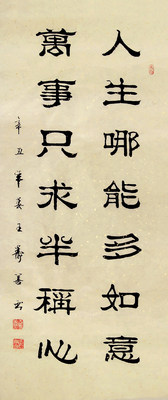 人生哪能多如意
萬事只求半稱心
辛丑年姜王壽善书